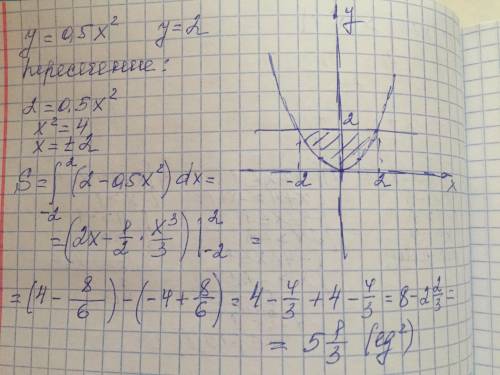 y = 0,5x² y = 2
пересечение:
2 = 0.5x²
x² = 4
x = ±2
S = ∫₋₂² (2 - 0,5x²) dx =
= (2x - 1/2 · x³/3) |₋₂² =
= (4 - 8/6) - (-4 + 8/6) = 4 - 4/3 + 4 - 4/3 = 8 - 2 2/3 =
= 5 1/3 (ед²)
y
2
-2 2 x